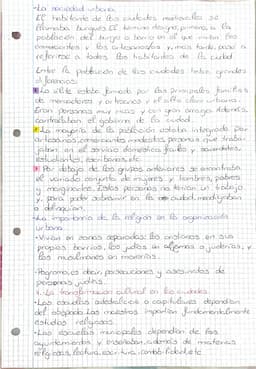 -La sociedad urbana.
El habitante de las ciudades medievales se
llamaba burgués. El término designó, primero, a la
población del burgo o barrio en el que vivían los
comerciantes y los artesanos y, más tarde, pasó a
referirse a todos los habitantes de la ciudad
Entre la población de las ciudades había grandes
diferencias:
La élite estaba formada por las principales familias
de mercaderes y artesanos y el alto clero urbano.
Eran personas muy ricas y con gran arraigo. Además,
controlaban el gobierno de la ciudad.
La mayoría de la población estaba integrada por
artesanos, comerciantes modestos, personas que traba-
jaban en el servicio doméstico, frailes y sacerdotes,
estudiantes, escribanos, etc.
Por debajo de los grupos anteriores se encontraba
el variado conjunto de mujeres y hombres, pobres
y marginados. Estas personas no tenían un trabajo
y, para poder sobrevivir en la ciudad, mendigaban
o delinquían.
-La importancia de la religión en la organización
urbana.
-Vivían en zonas separadas: los cristianos, en sus
propios barrios, los judíos en aljamas o juderías, y
los musulmanes en morerías.
-Pogromo, es decir, persecuciones y asesinatos de
personas judías.
4. La transformación cultural en las ciudades
-Las escuelas catedralicias o capitulares dependían
del obispado. Los maestros impartían fundamentalmente
estudios religiosos.
-Las escuelas municipales dependían de los
ayuntamientos y enseñaban, además de materias
religiosas, lectura, escritura, contabilidad, etc